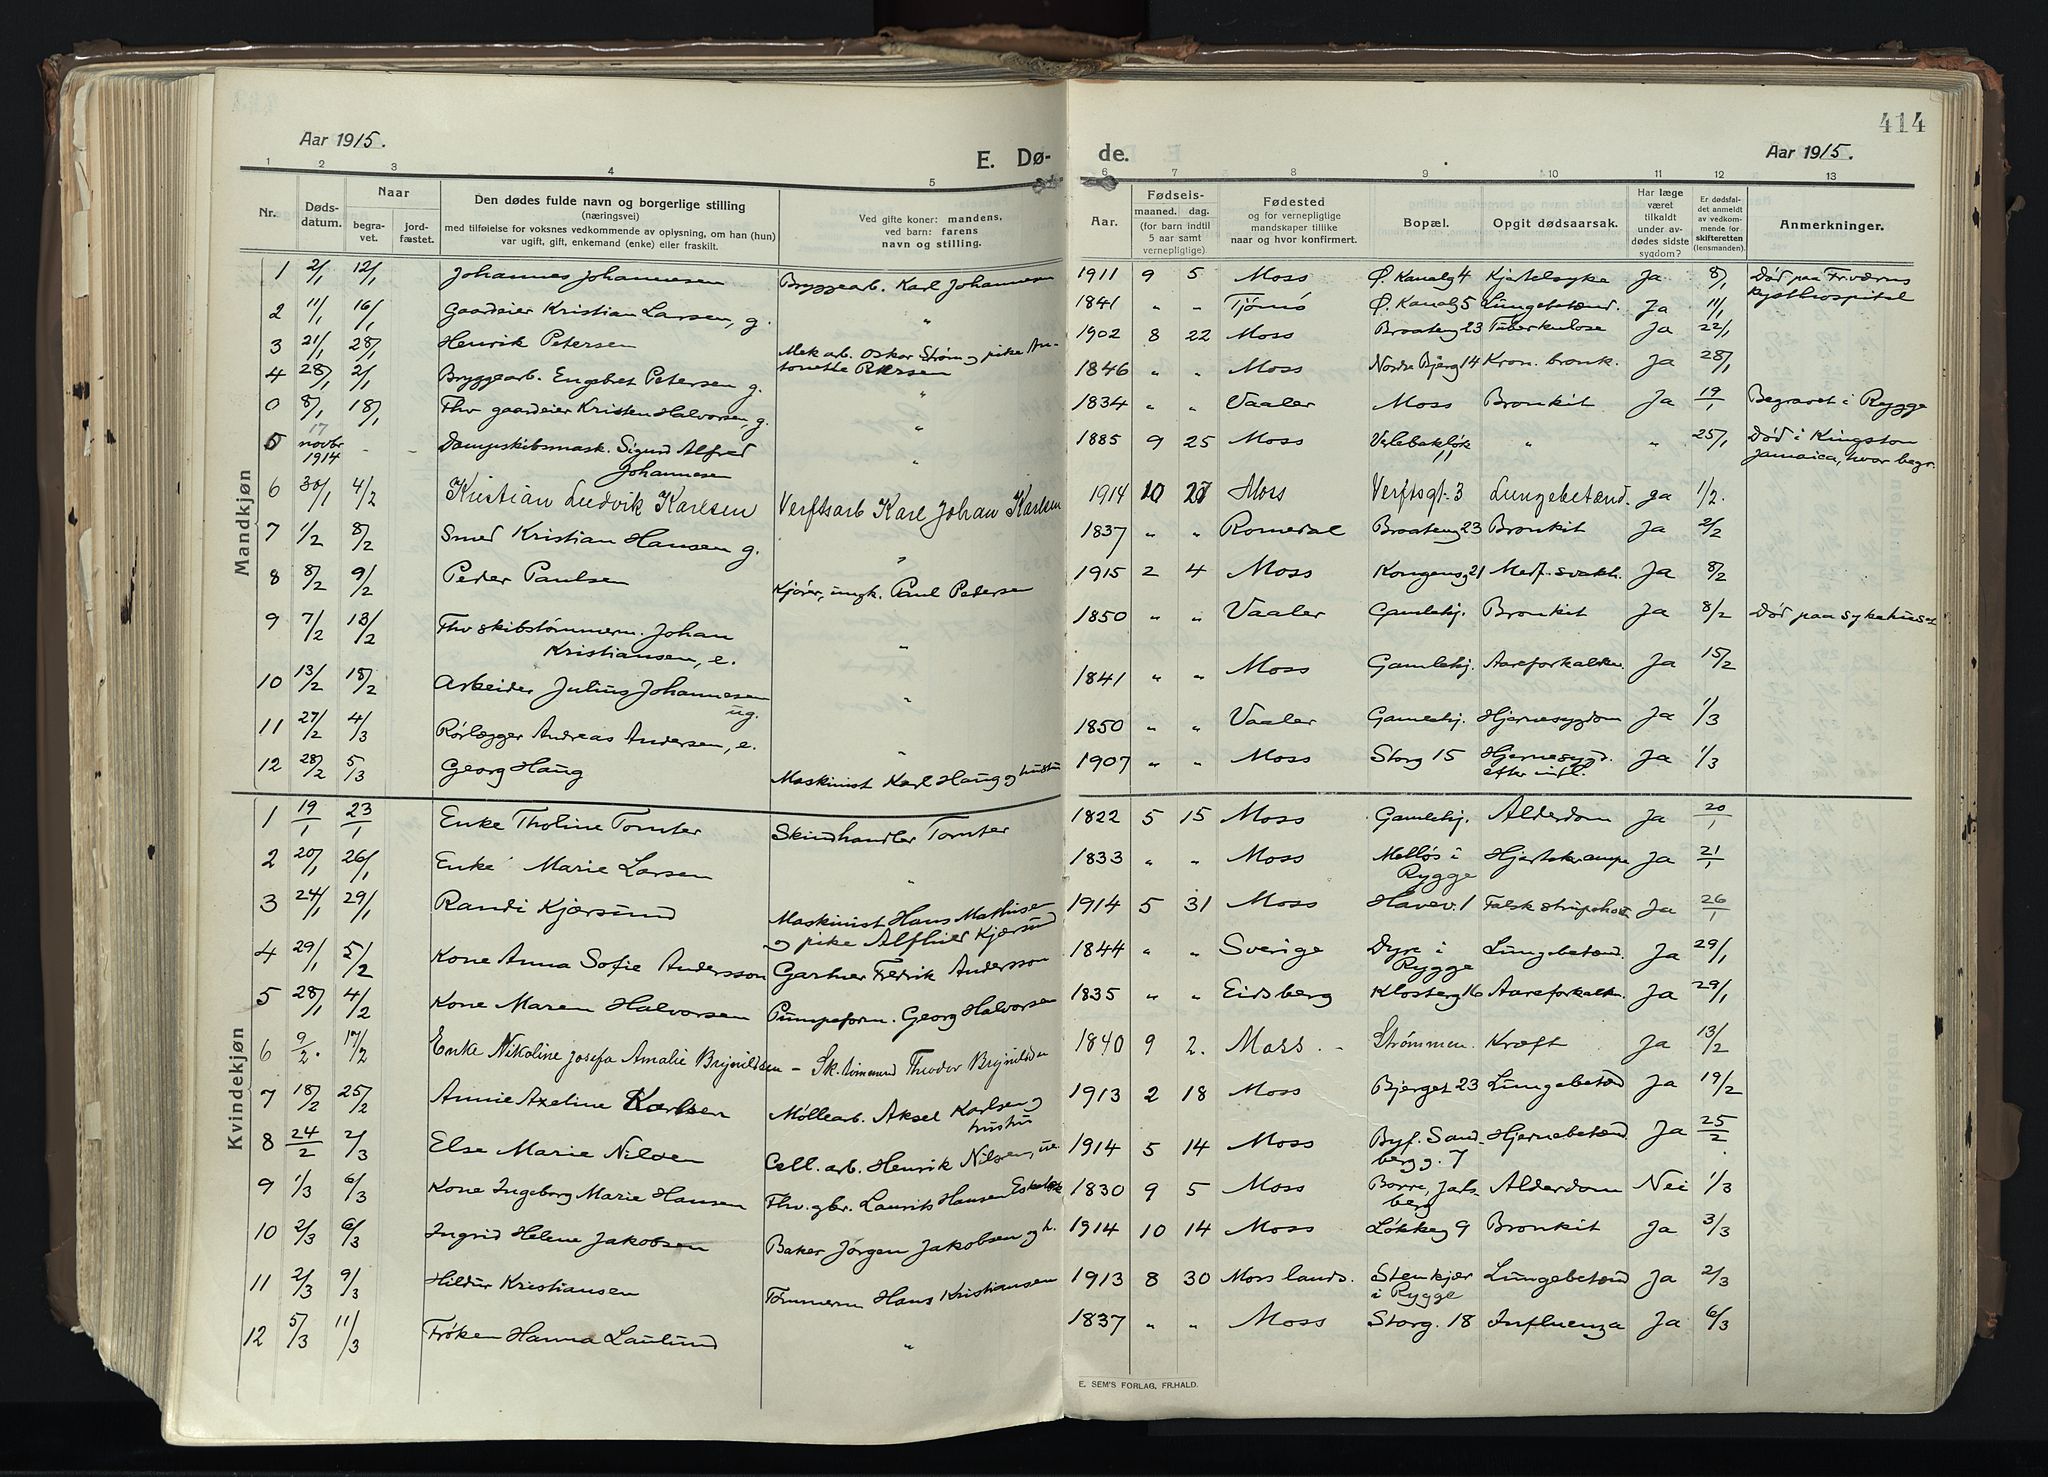 414
Aar 1915.
E. Dø-
de.
Aar 1915.
1 2 3 4 5 6 7 8 9 10 11 12 13
Nr. Døds-datum. Naar begra-vet. jord-fæstet. Den dødes fulde navn og borgerlige stilling (næringsvei) med tilføielse for voksnes vedkommende av oplysning, om han (hun) var ugift, gift, enkemand (enke) eller fraskilt. Ved gifte koner: mandens, ved barn: farens navn og stilling. Aar. Fødsels-maaned. dag. (for barn indtil 5 aar samt vernepligtige). Fødested og for vernepligtige mandskaper tillike naar og hvor konfirmert. Bopæl. Opgit dødsaarsak. Har læge været tilkaldt under av-dødes sidste sygdom? Er dødsfal-det anmeldt av vedkom-mende for skifteretten (lensmanden). Anmerkninger.
Mandkjøn
1 2/1 12/1 Johannes Johannesen Bryggearb. Karl Johannesen 1911 9 5 Moss Ø. Kanalg 4 Kjertelsyke Ja 8/1 Død paa Fr.værns
kysthospital
2 11/1 16/1 Gaardeier Kristian Larsen, g. " 1841 " " Tjømø Ø. Kanalg 5 Lungebetænd. Ja 11/1
3 21/1 28/1 Henrik Petersen Mek arb. Oskar Strøm og pike An-
tonette Petersen 1902 8 22 Moss Braateng 23 Tuberkulose Ja 22/1
4 28/1 2/1 Bryggearb. Engebret Petersen g. " 1846 " " Moss Nordre Bjerg 14 Kron. bronk. Ja 28/1
0 8/1 18/1 Fhv gaardeier Kristen Halvorsen, g. " 1834 " " Vaaler Moss Bronkit Ja 19/1 Begravet i Rygge
5 17 novbr 1914 - - Dampskibsmask. Sigurd Alfred
Johannesen " 1885 9 25 Moss 11 " " 25/1 Død i Kingston
Jamaica, hvor begr.
6 30/1 4/2 Kristian Ludvik Karlsen Verftsarb Karl Johan Karlsen 1914 10 27 Moss Verftsgt. 3 Lungebetænd. ja 1/2.
7 1/2 8/2 Smed Kristian Hansen g. " 1837 " " Romedal Braateng 23 Bronkit Ja 2/2
8 8/2 9/2 Peder Paulsen Kjører, ungk. Paul Pedersen 1915 2 4 Moss Kongensg 21 Medf. svakh. Ja 8/2
9 7/2 13/2 Fhv skibstømmerm. Johan
Kristiansen, e. " 1850 " " Vaaler Gamlehj. Bronkit Ja 8/2 Død paa sykehuset
10 13/2 18/2 Arbeider Julius Johannesen
ug. " 1841 " " Moss Gamlehj. Aareforkalkn. Ja 15/2
11 27/2 4/3 Rørlægger Andreas Andersen, e. " 1850 " " Vaaler Gamlehj. Hjernesygdom Ja 1/3
12 28/2 5/3 Georg Haug Maskinist Karl Haug og hustru 1907 " " Moss Storg 15 Hjernesygd.
efter infl. Ja 1/3
Kvindekjøn
1 19/1 23/1 Enke Tholine Tomter Skindhandler Tomter 1822 5 15 Moss Gamlehj. Alderdom Ja 20/1
2 20/1 26/1 Enke Marie Larsen " 1833 " " Moss Melløs i
Rygge Hjertekrampe Ja 21/1
3 24/1 29/1 Randi Kjærsund Maskinist Hans Mathisen
og pike Kjærsund 1914 5 31 Moss Havev. 1 Falsk Ja 26/1
4 29/1 5/2 Kone Anna Sofie Andersson Gartner Fredrik Andersson 1844 " " Sverige Dyre i
Rygge Lungebetænd. Ja 29/1
5 28/1 4/2 Kone Maren Halvorsen Pumpeform. Georg Halvorsen 1835 " " Eidsberg Klosterg 16 Aareforkalkn. Ja 29/1
6 9/2. 17/2 Enke Nikoline Josefa Amalie Brynildsen - Sk. tømmermd Theodor Brynildsen 1840 9 2. Moss. - Strømmen. Kræft Ja 13/2
7 18/2 25/2 Annie Axeline Karlsen Møllearb. Aksel Karlsen og
hustru 1913 2 18 Moss Bjerget 23 Lungebetænd Ja 19/2
8 24/2 2/3 Else Marie Nilsen Cell. arb. Henrik Nilsen, 1914 5 14 Moss Byf. Sand-
bergg. 7 Hjernebetænd Ja 25/2.
9 1/3 6/3 Kone Ingeborg Marie Hansen Fhv. gbr. Laurits Hansen 1830 9 5 Moss Borre, Jarls-
berg Alderdom Nei 1/3
10 2/3 6/3 Ingrid Helene Jakobsen Baker Jørgen Jakobsen og h. 1914 10 14 Moss Løkkeg 9 Bronkit Ja 3/3
11 2/3 9/3 Hildur Kristiansen Tømmerm Hans Kristiansen 1913 8 30 Moss lands. Stenkjær
i Rygge Lungebetænd Ja 2/3
12 5/3 11/3 Frøken Hanna Laulund " 1837 " " Moss Storg. 18 Influenza Ja 6/3
E. SEM'S FORLAG, FR.HALD.